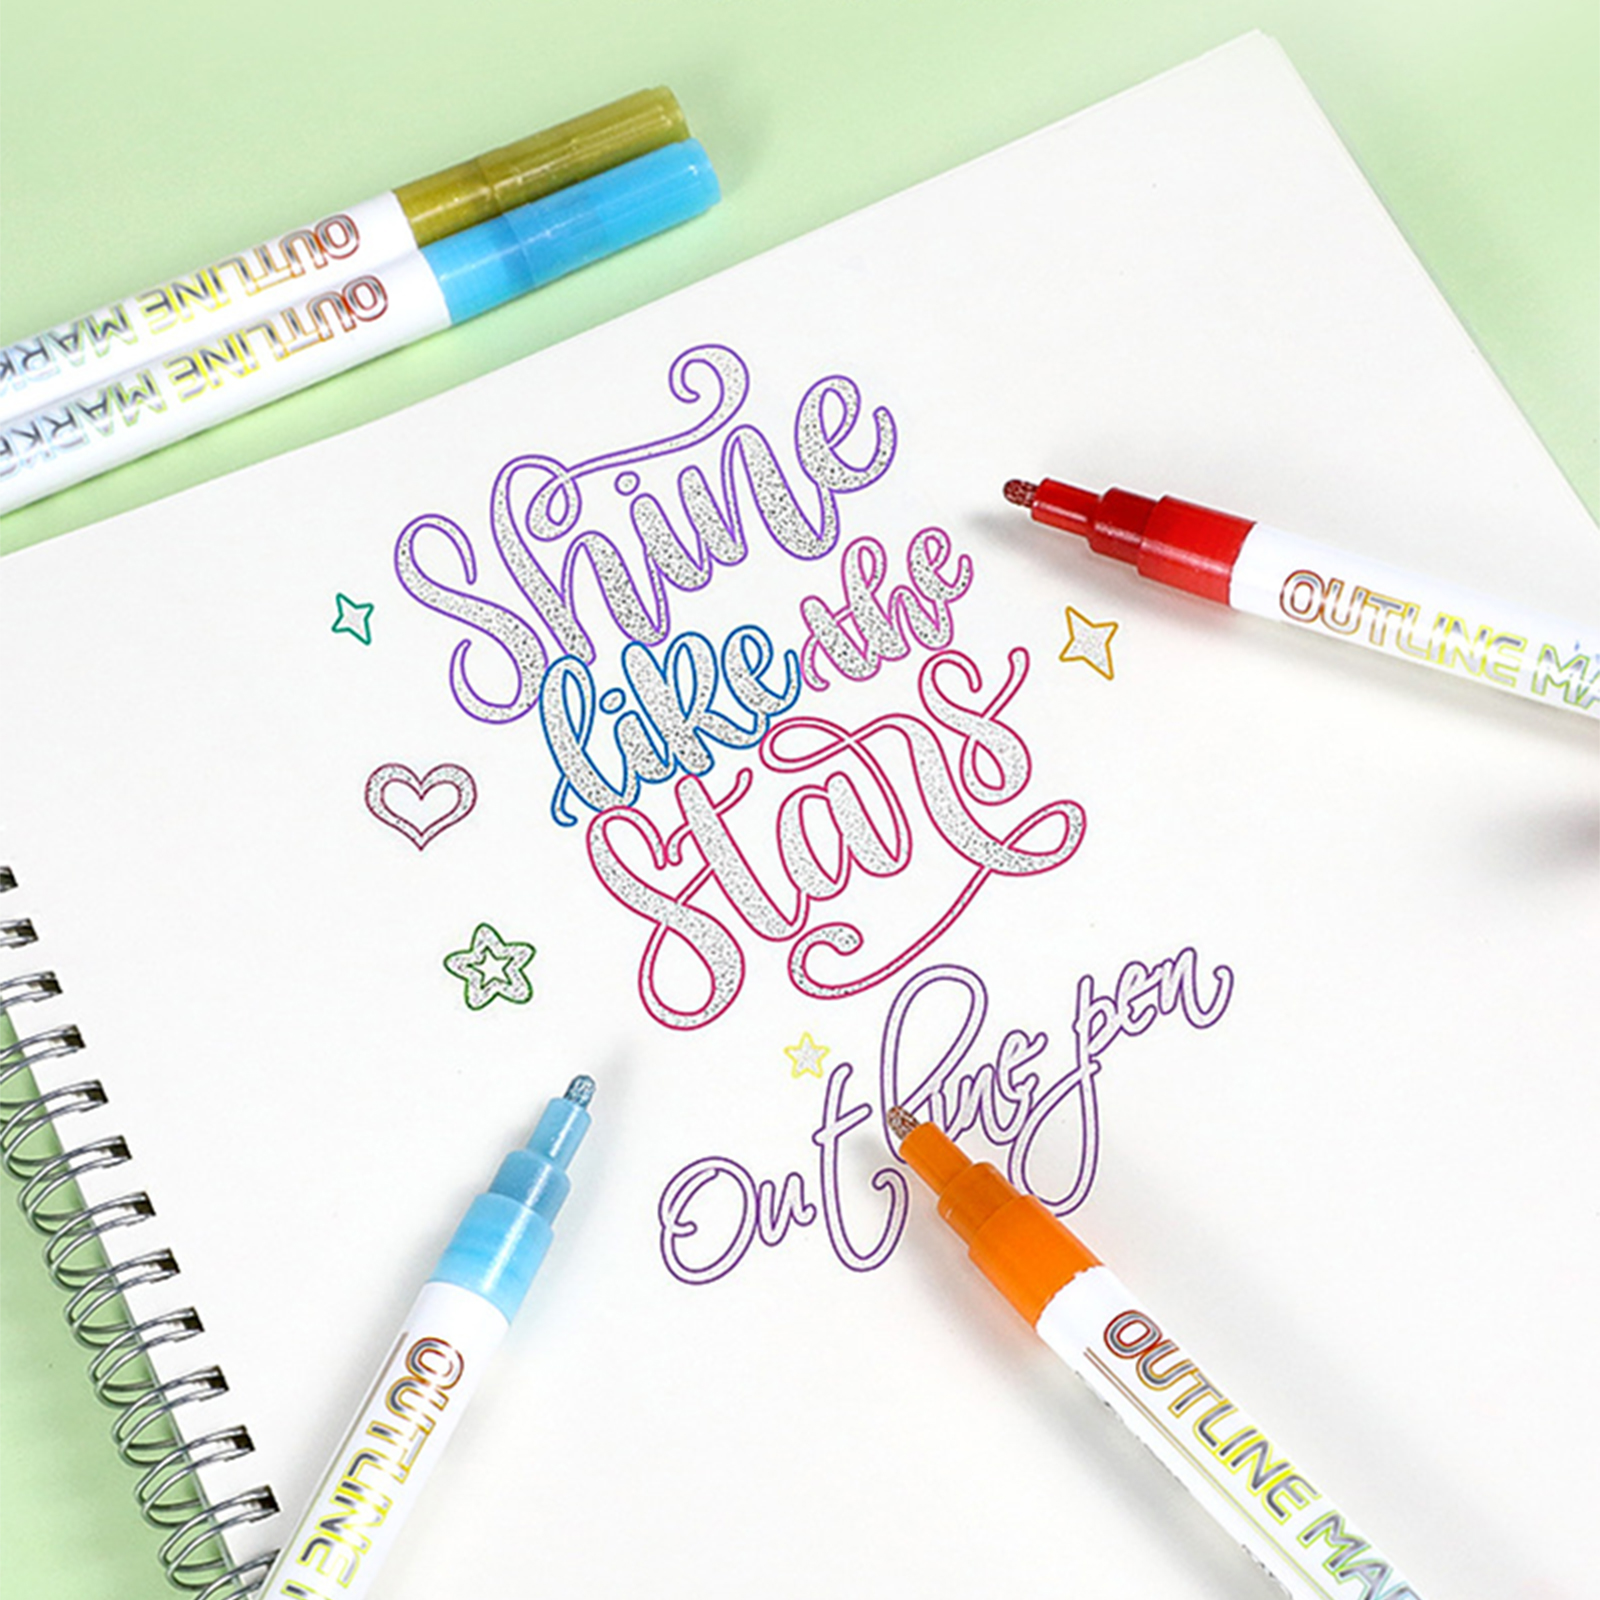 OUTLINE MARK
OUTLINE MARKE
Shine
like the
Stars
OUTLINE MA
Outline pen
OUTLINE
OUTLINE MAR